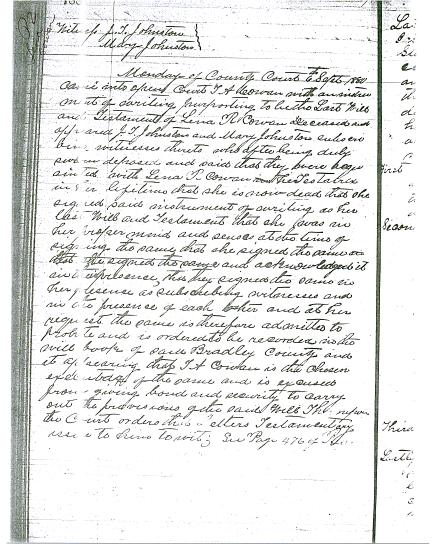 Witness J. T. Johnston
Mary Johnston
Monday of County Court 6 Sept. 1880
came into open Court T A Cowan with an instru
ment of writing purporting to be the Last Will
and Testament of Lena R. Cowan Deceased and
appeared J. T. Johnston and Mary Johnston subscri
bing witnesses thereto who after being duly
sworn deposed and said that they were acqu
ainted with Lena R. Cowan the Testatrix
in her lifetime that she is now dead that she
signed said instrument of writing as her
last Will and Testament that she was in
her proper mind and senses at the time of
signing the same that she signed the same or
that she signed the same and acknowledged it
in their presence, that they signed the same in
her presence as subscribing witnesses and
in the presence of each other and at her
request the same is therefore admitted to
probate and is ordered to be recorded in the
will book of said Bradley County and
it appearing that T. A Cowan is the chosen
of the same and is excused
from giving bond and security to carry
out the provisions of the said Will
the Court orders that Letters Testamentary
issue to him to wit; See Page 476 of
La
First
Secon
Third
Lastly